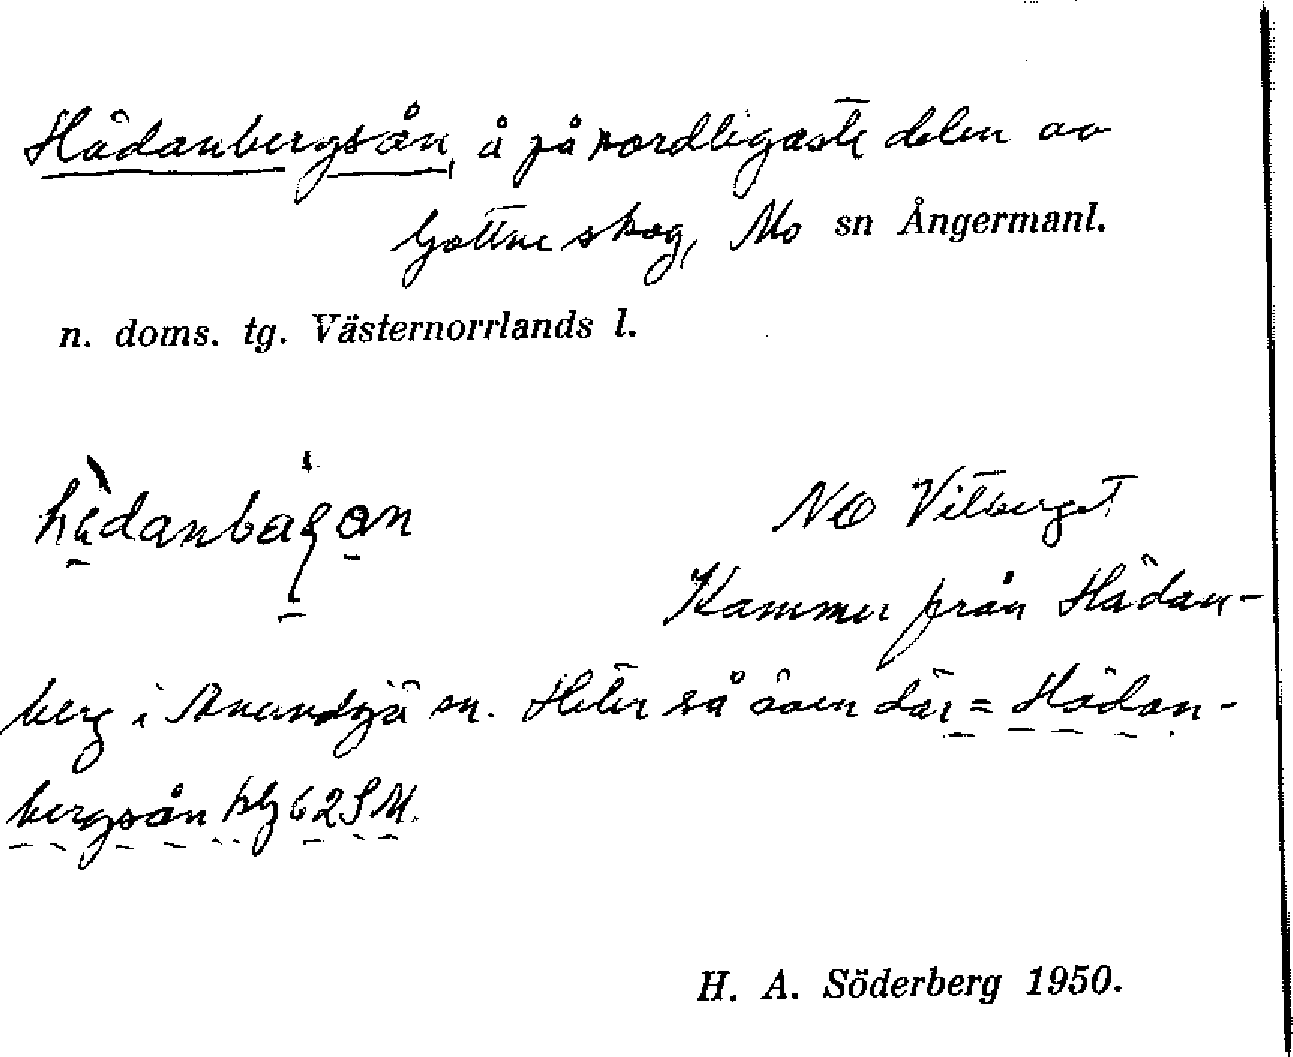 Hädanbergsån, å på nordligaste delen av
Gottne skog, Mo sn Ångermanl.
n. doms. tg. Västernorrlands l.
NO Vitberget
Kammer från Hädan-
berg i Anundsjö sn. Heter så även där = Hädan-
bergsån blg 62 SM.
H. A. Söderberg 1950.